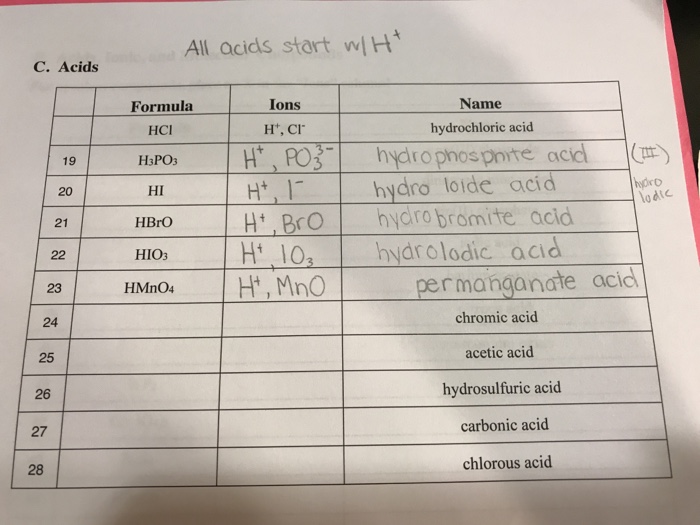 All acids start w/ H⁺
C. Acids
Formula Ions Name
HCl H⁺, Cl⁻ hydrochloric acid
19 H₃PO₃ H⁺, PO₃³⁻ hydrophosphite acid (III)
20 HI H⁺, I⁻ hydro Ioide acid hydro Iodic
21 HBrO H⁺, BrO hydrobromite acid
22 HIO₃ H⁺ IO₃ hydroIodic acid
23 HMnO₄ H⁺, MnO permanganate acid
24 chromic acid
25 acetic acid
26 hydrosulfuric acid
27 carbonic acid
28 chlorous acid